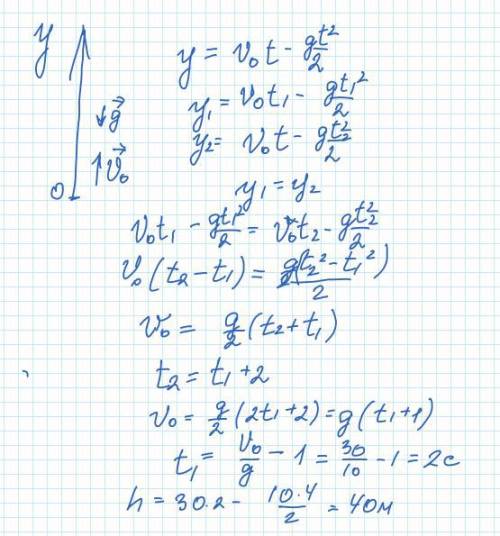 y
↓g⃗
↑v⃗₀
0
y = v₀t - gt²/2
y₁ = v₀t₁ - gt₁²/2
y₂ = v₀t - gt₂²/2
y₁ = y₂
v₀t₁ - gt₁²/2 = v₀t₂ - gt₂²/2
v₀(t₂ - t₁) = g(t₂² - t₁²)/2
v₀ = g/2 (t₂ + t₁)
t₂ = t₁ + 2
v₀ = g/2 (2t₁ + 2) = g(t₁ + 1)
t₁ = v₀/g - 1 = 30/10 - 1 = 2с
h = 30.2 - 10·4/2 = 40м